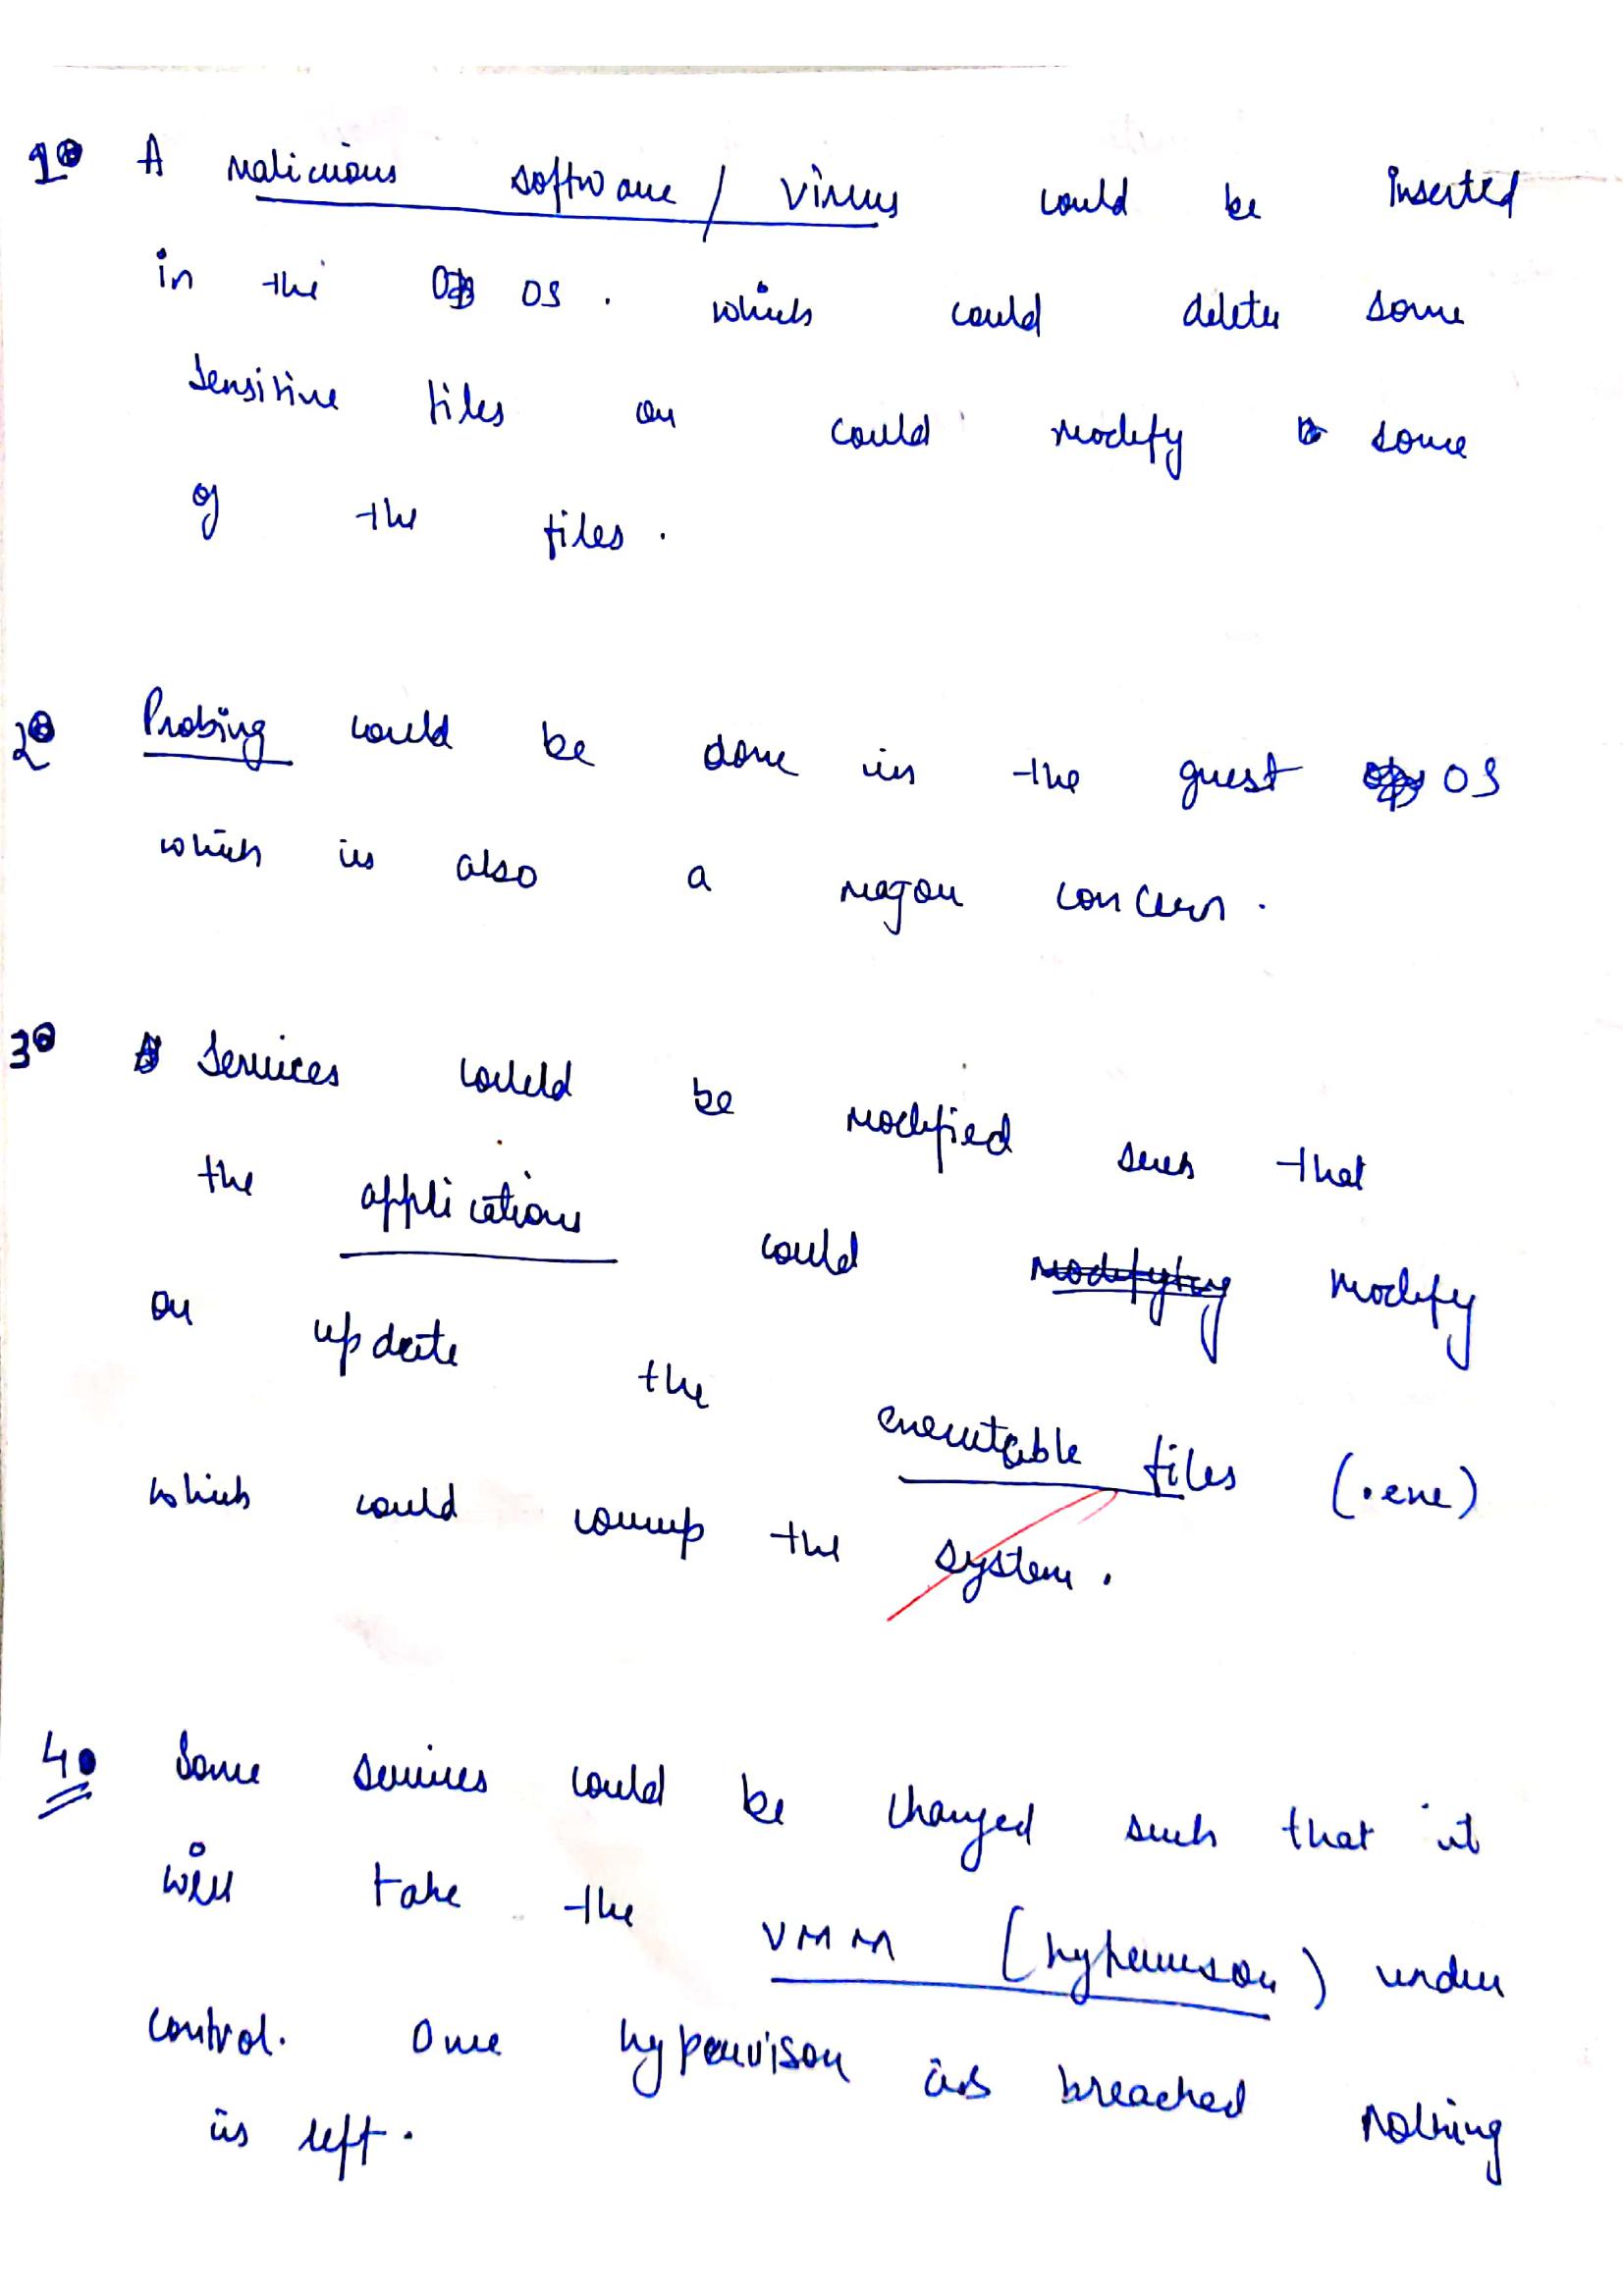 1. A malicious software / virus could be inserted
in the OS. which could delete some
sensitive files or could modify some
of the files.
2. Probing could be done in the guest OS
which is also a major concern.
3. Services could be modified such that
the applications could modifying modify
or update the executable files (.exe)
which could corrup the system.
4. Some services could be changed such that it
will take the VMM (hypervisor) under
control. Once hypervisor is breached nothing
is left.